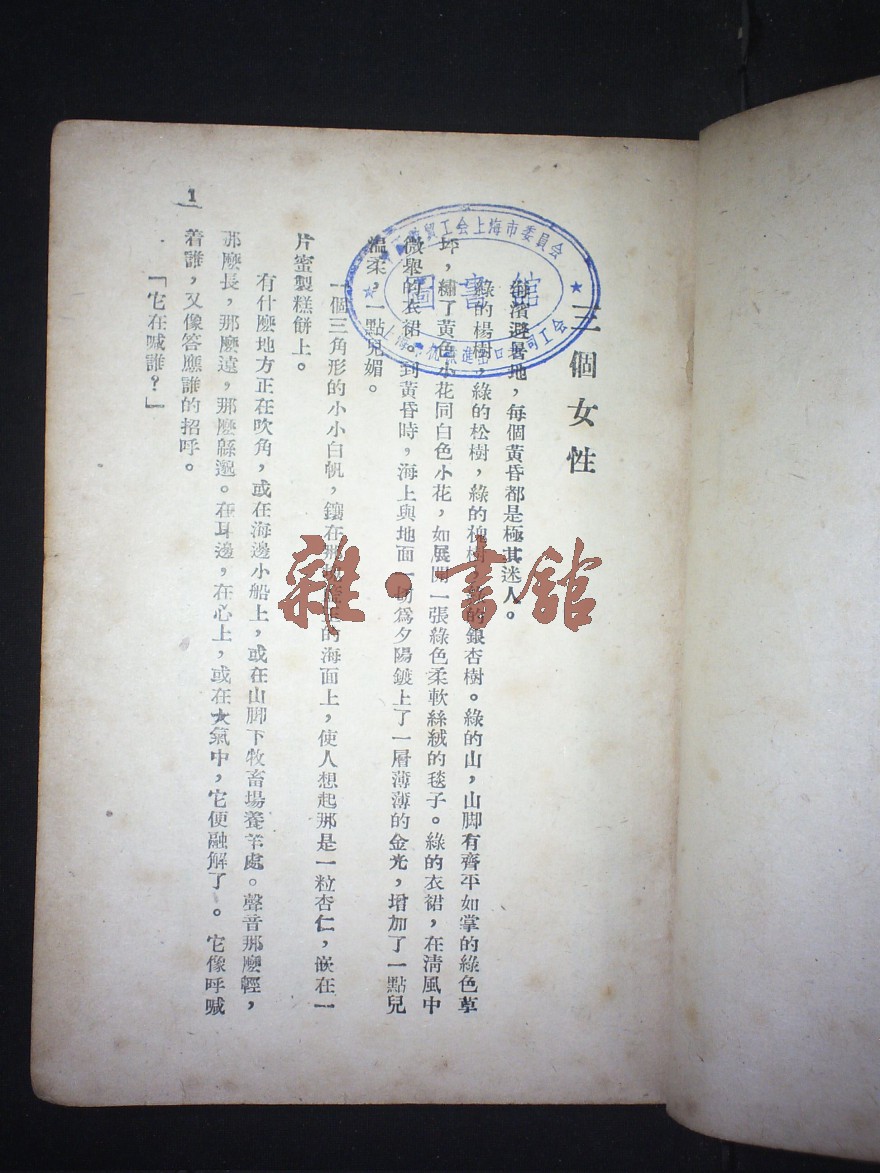 三個女性
海濱避暑地，每個黃昏都是極其迷人。
綠的楊樹，綠的松樹，綠的槐樹，綠的銀杏樹。綠的山，山脚有齊平如掌的綠色草
坪，繡了黃色小花同白色小花，如展開一張綠色柔軟絲絨的毯子。綠的衣裙，在清風中
微舉的衣裙。到黃昏時，海上與地面一切爲夕陽鍍上了一層薄薄的金光，增加了一點兒
溫柔，一點兒媚。
一個三角形的小小白帆，鑲在 的海面上，使人想起那是一粒杏仁，嵌在一
片蜜製糕餅上。
有什麼地方正在吹角，或在海邊小船上，或在山脚下牧畜場養羊處。聲音那麼輕，
那麼長，那麼遠，那麼緜邈。在耳邊，在心上，或在大氣中，它便融解了。它像呼喊
着誰，又像答應誰的招呼。
「它在喊誰？」
1
貿工会上海市委員会
圖書館
進出口 同工会
雜·書館